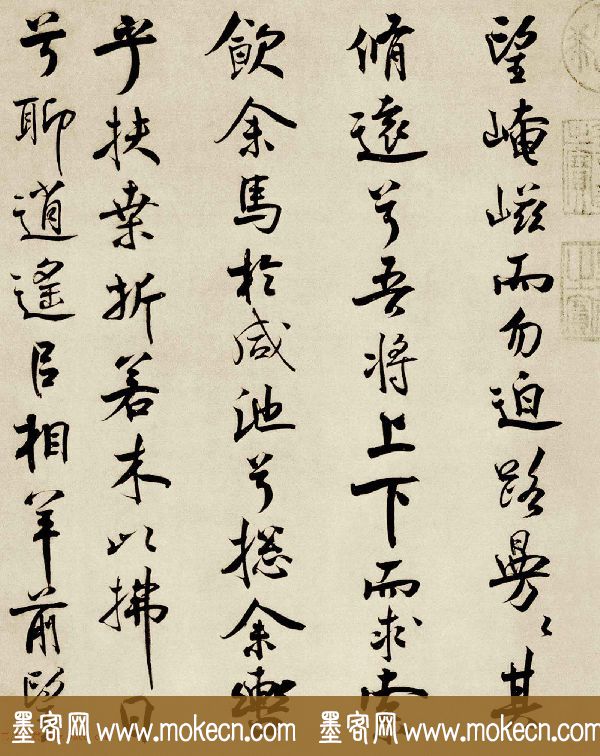 望崦嵫而勿迫路曼〻其
脩遠兮吾將上下而求索
飲余馬於咸池兮揔余轡
乎扶桒折若木以拂日
兮聊逍遙㠯相羊前望
墨客网 www.mokecn.com 墨客网 www.mokecn.com